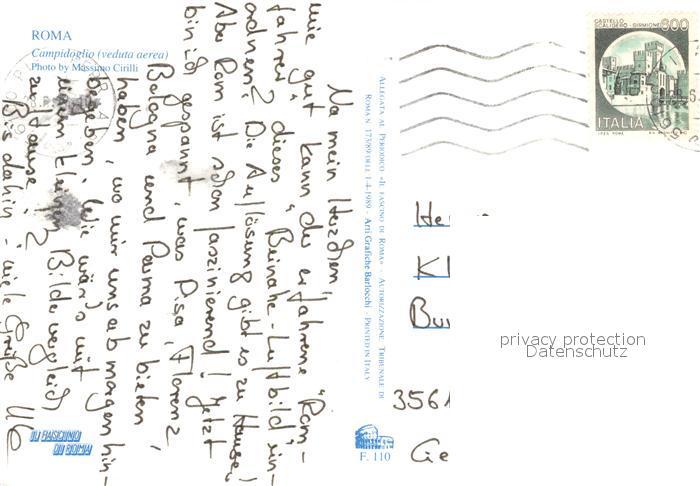 ROMA
Campidoglio (veduta aerea)
Photo by Massimo Cirilli
Na mein Herzchen,
wie gut kann der erfahrene "Rom-
fahrer" dieses "Beinahe-Luftbild" ein-
ordnen? Die Auflösung gibt es zu Hause!
Aber Rom ist schon faszinierend! Jetzt
bin ich gespannt, was Pisa, Florenz,
Bologna und Parma zu bieten
haben, wo wir uns ab morgen hin-
begeben. Wie wär's mit
einem kleinen Bildervergleich
zu Hause?
Bis dahin - viele Grüße
ALLEGATA AL PERIODICO «IL FASCINO DI ROMA» - AUTORIZZAZIONE TRIBUNALE DI
ROMA N. 173/89 DELL' 1-4-1989 - Arti Grafiche Barlocchi - PRINTED IN ITALY
IL FASCINO
DI ROMA
F. 110
CASTELLO
SCALIGERO - SIRMIONE
600
ITALIA
He
Kl
Bu
privacy protection
Datenschutz
3561
Ge